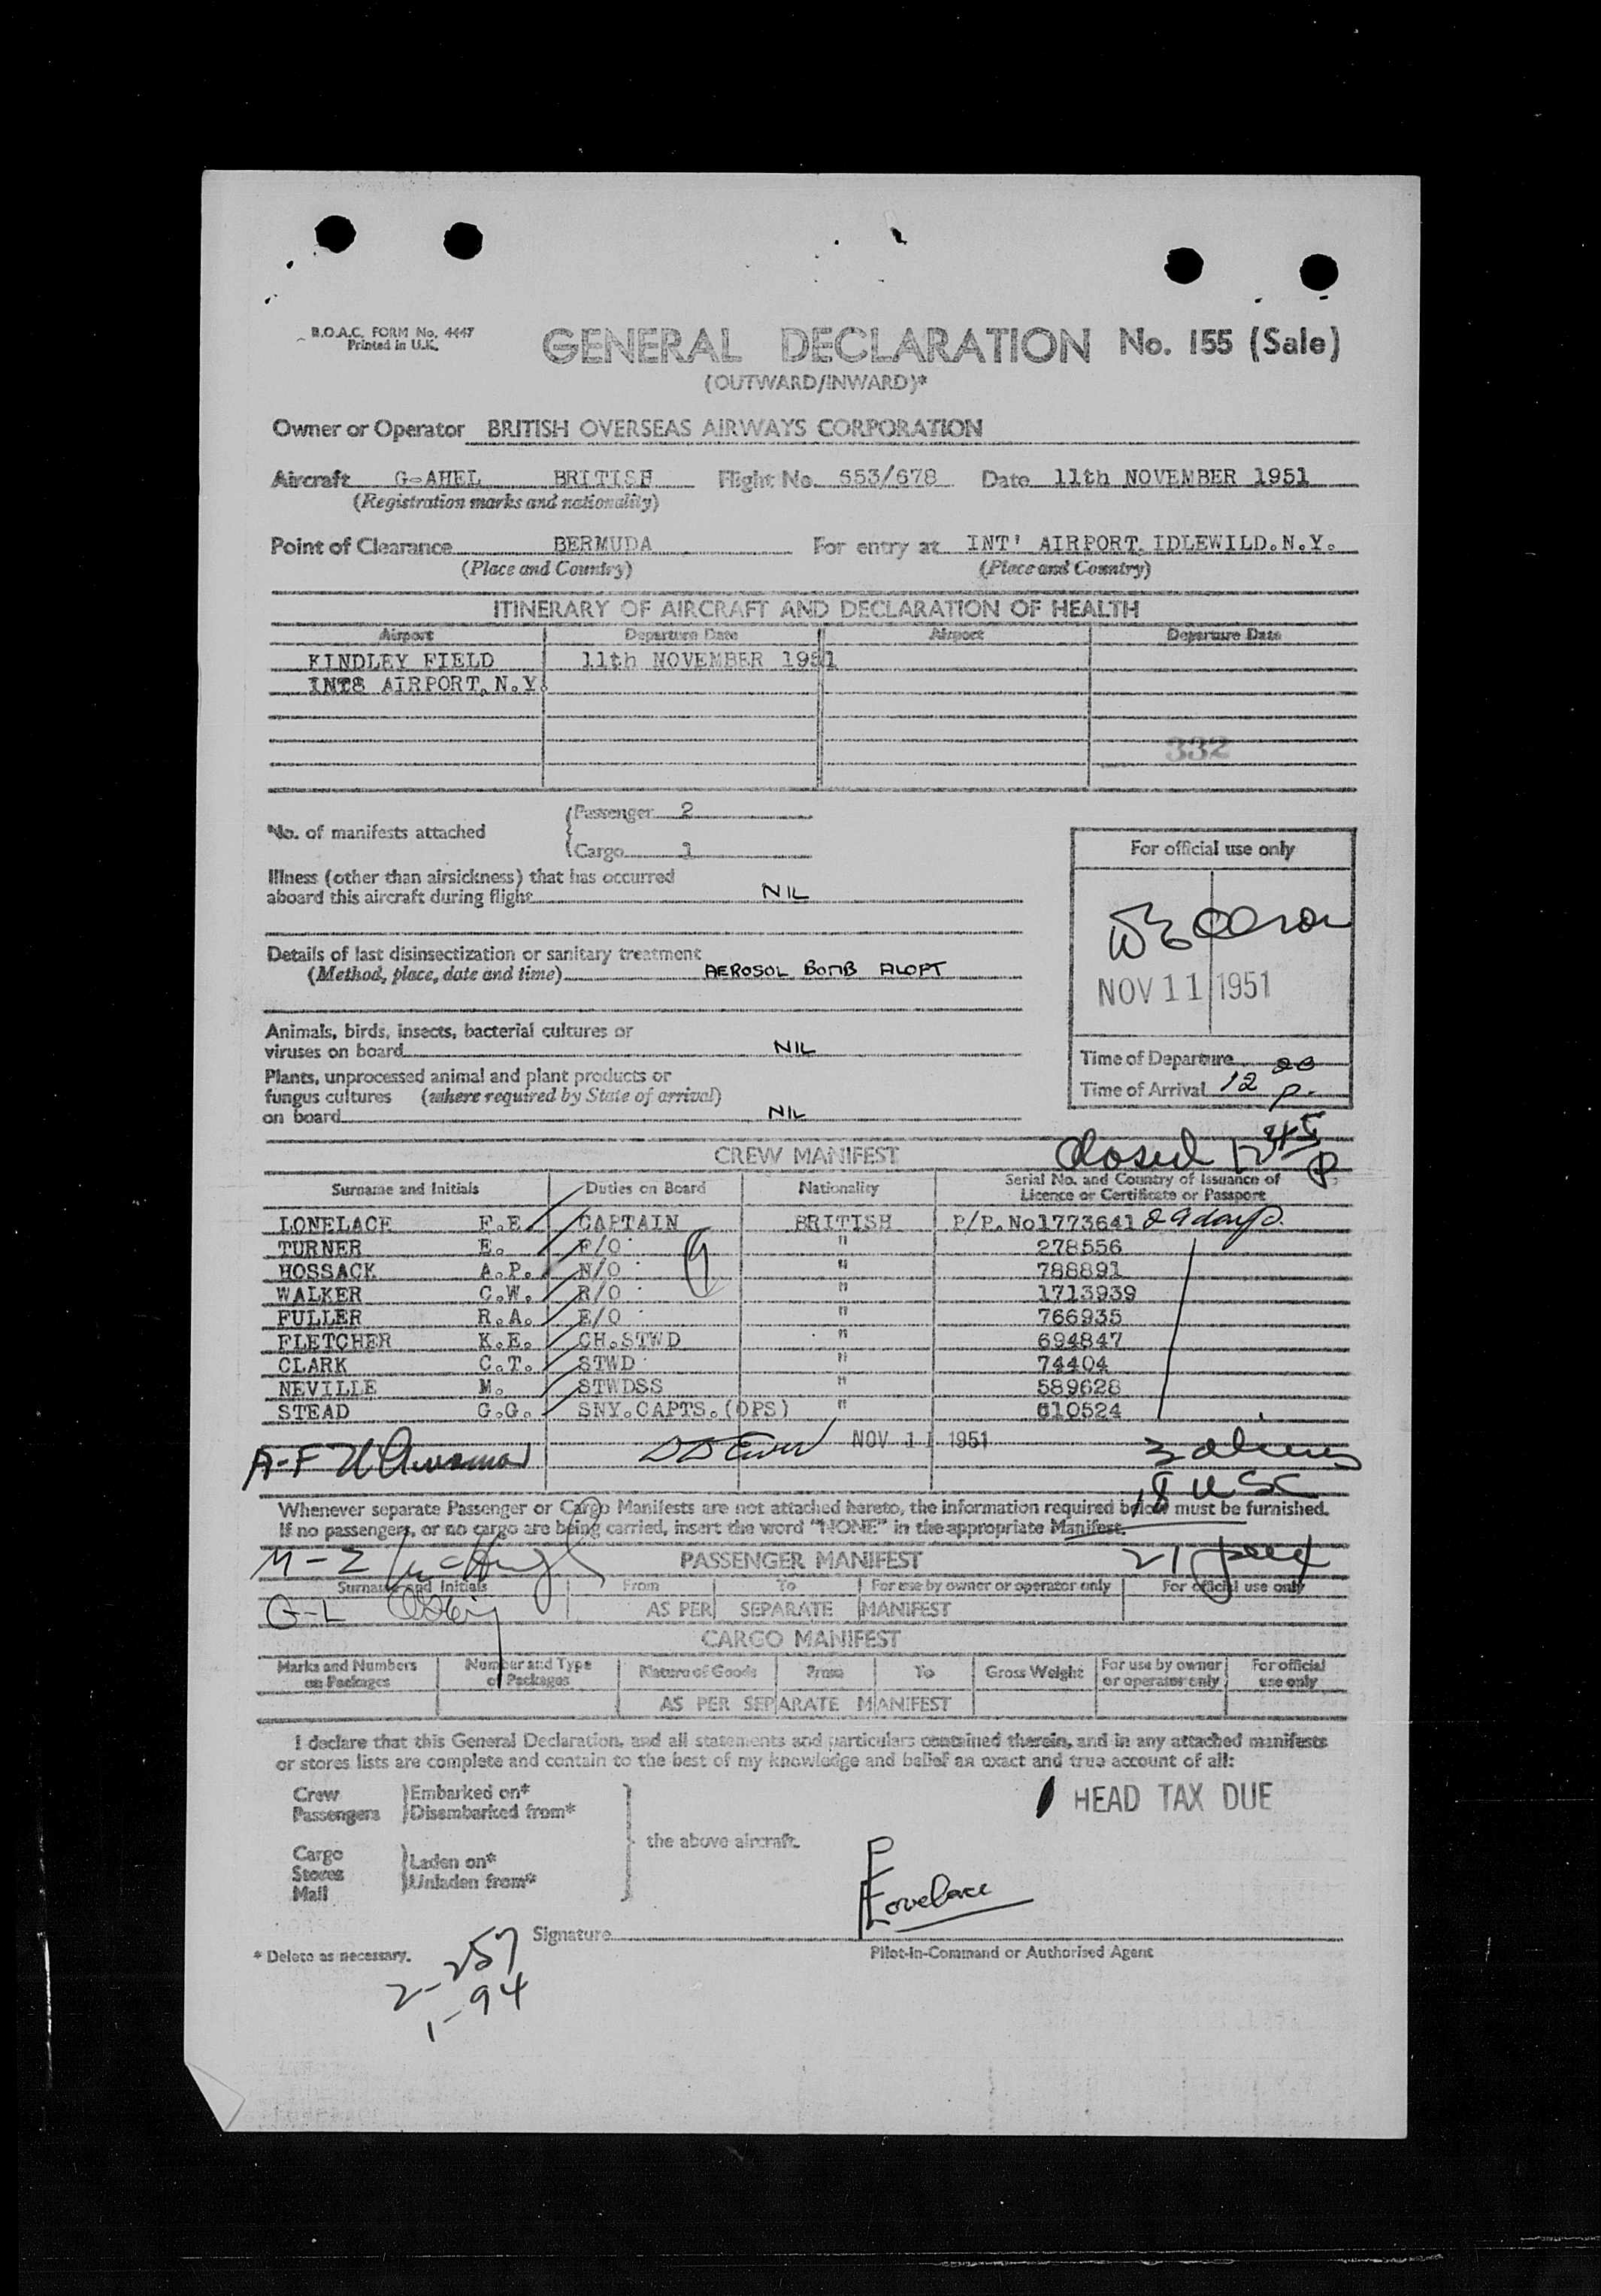 B.O.A.C. FORM No. 4447
Printed in U.K.
GENERAL DECLARATION No. 155 (Sale)
(OUTWARD/INWARD)*
Owner or Operator BRITISH OVERSEAS AIRWAYS CORPORATION
Aircraft G-AHEL BRITISH Flight No. 553/678 Date 11th NOVEMBER 1951
(Registration marks and nationality)
Point of Clearance BERMUDA For entry at INT' AIRPORT. IDLEWILD.N.Y.
(Place and Country) (Place and Country)
ITINERARY OF AIRCRAFT AND DECLARATION OF HEALTH
Airport Departure Date Airport Departure Date
KINDLEY FIELD 11th NOVEMBER 1951
INT8 AIRPORT.N.Y.
332
*No. of manifests attached
Passenger 2
Cargo 1
For official use only
Illness (other than airsickness) that has occurred
aboard this aircraft during flight NIL
Details of last disinsectization or sanitary treatment
(Method, place, date and time) AEROSOL BOMB ALOFT
NOV 11 1951
Animals, birds, insects, bacterial cultures or
viruses on board NIL
Time of Departure
Plants, unprocessed animal and plant products or
fungus cultures (where required by State of arrival)
on board NIL
Time of Arrival 12 20 P.
CREW MANIFEST
Closed 12 45 P.
Surname and Initials Duties on Board Nationality Serial No. and Country of Issuance of
Licence or Certificate or Passport
LONELACE F.E. CAPTAIN BRITISH P/P.No1773641 29 days.
TURNER E. F/O " 278556
HOSSACK A.P. N/O " 788891
WALKER C.W. R/O " 1713939
FULLER R.A. E/O " 766935
FLETCHER K.E. CH.STWD " 694847
CLARK C.T. STWD " 74404
NEVILLE M. STWDSS " 589628
STEAD G.G. SNY.CAPTS.(OPS) " 610524
9
A-F NOV 11 1951 3 aliens
18 USC
Whenever separate Passenger or Cargo Manifests are not attached hereto, the information required below must be furnished.
If no passengers, or no cargo are being carried, insert the word "NONE" in the appropriate Manifest.
M-Z PASSENGER MANIFEST 21
Surname and Initials From To For use by owner or operator only For official use only
G-L AS PER SEPARATE MANIFEST
CARGO MANIFEST
Marks and Numbers on Packages Number and Type of Packages Nature of Goods From To Gross Weight For use by owner or operator only For official use only
AS PER SEPARATE MANIFEST
I declare that this General Declaration, and all statements and particulars contained therein, and in any attached manifests
or stores lists are complete and contain to the best of my knowledge and belief an exact and true account of all:
Crew Embarked on*
Passengers Disembarked from*
HEAD TAX DUE
the above aircraft.
Cargo
Stores Laden on*
Mail Unladen from*
F E Lovelace
Signature
* Delete as necessary.
Pilot-in-Command or Authorised Agent
2-257
1-94